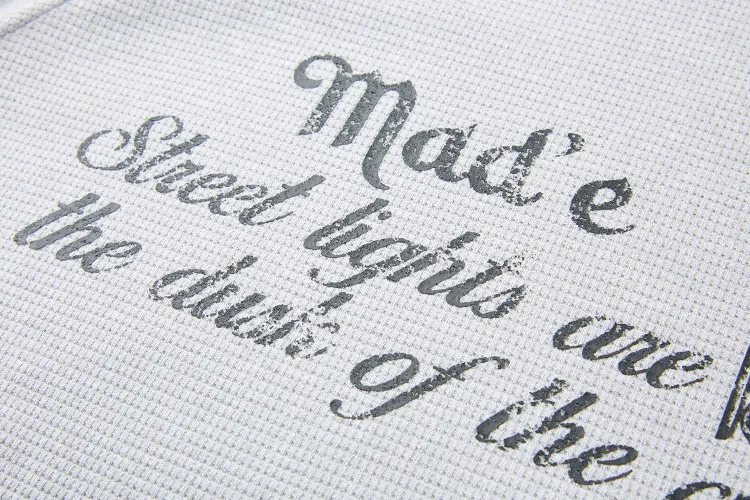 Mad'e
Street lights are
the dusk of the